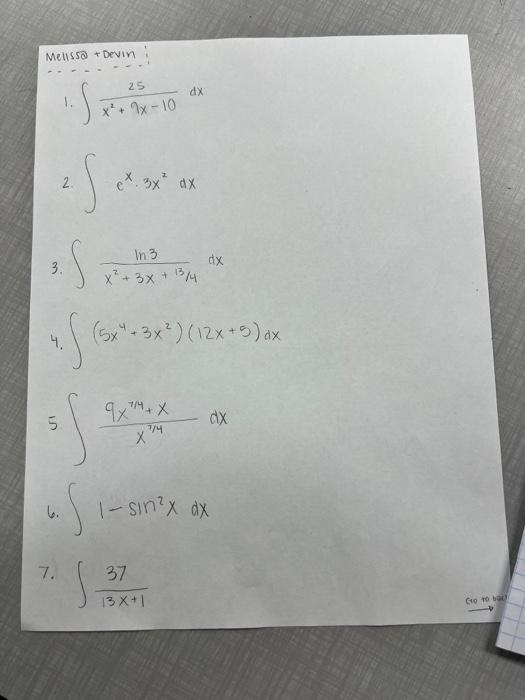 Melissa + Devin
1. ∫ 25 / (x² + 9x - 10) dx
2. ∫ eˣ · 3x² dx
3. ∫ ln 3 / (x² + 3x + 13/4) dx
4. ∫ (5x⁴ + 3x²)(12x + 5) dx
5 ∫ (9x^(7/4) + x) / x^(7/4) dx
6. ∫ 1 - sin²x dx
7. ∫ 37 / (13x + 1)
Go to back